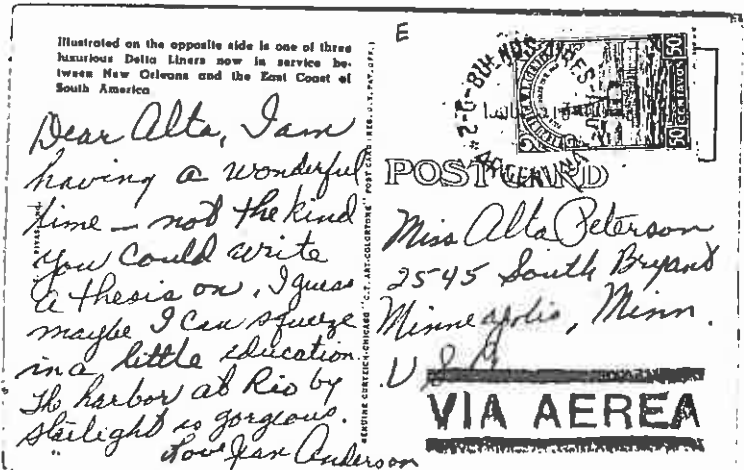 Illustrated on the opposite side is one of three
luxurious Delta Liners now in service be-
tween New Orleans and the East Coast of
South America
Dear Alta, I am
having a wonderful
time – not the kind
you could write
a thesis on, I guess
maybe I can squeeze
in a little education.
Th harbor at Rio by
starlight is gorgeous.
Love Jean Anderson
GENUINE CURTEICH-CHICAGO "C.T. ART-COLORTONE" POST CARD (REG. U.S. PAT. OFF.)
E
BUENOS AIRES
ARGENTINA
50
CENTAVOS
50
POST CARD
Miss Alta Peterson
2545 South Bryant
Minneapolis, Minn.
U S A
VIA AEREA